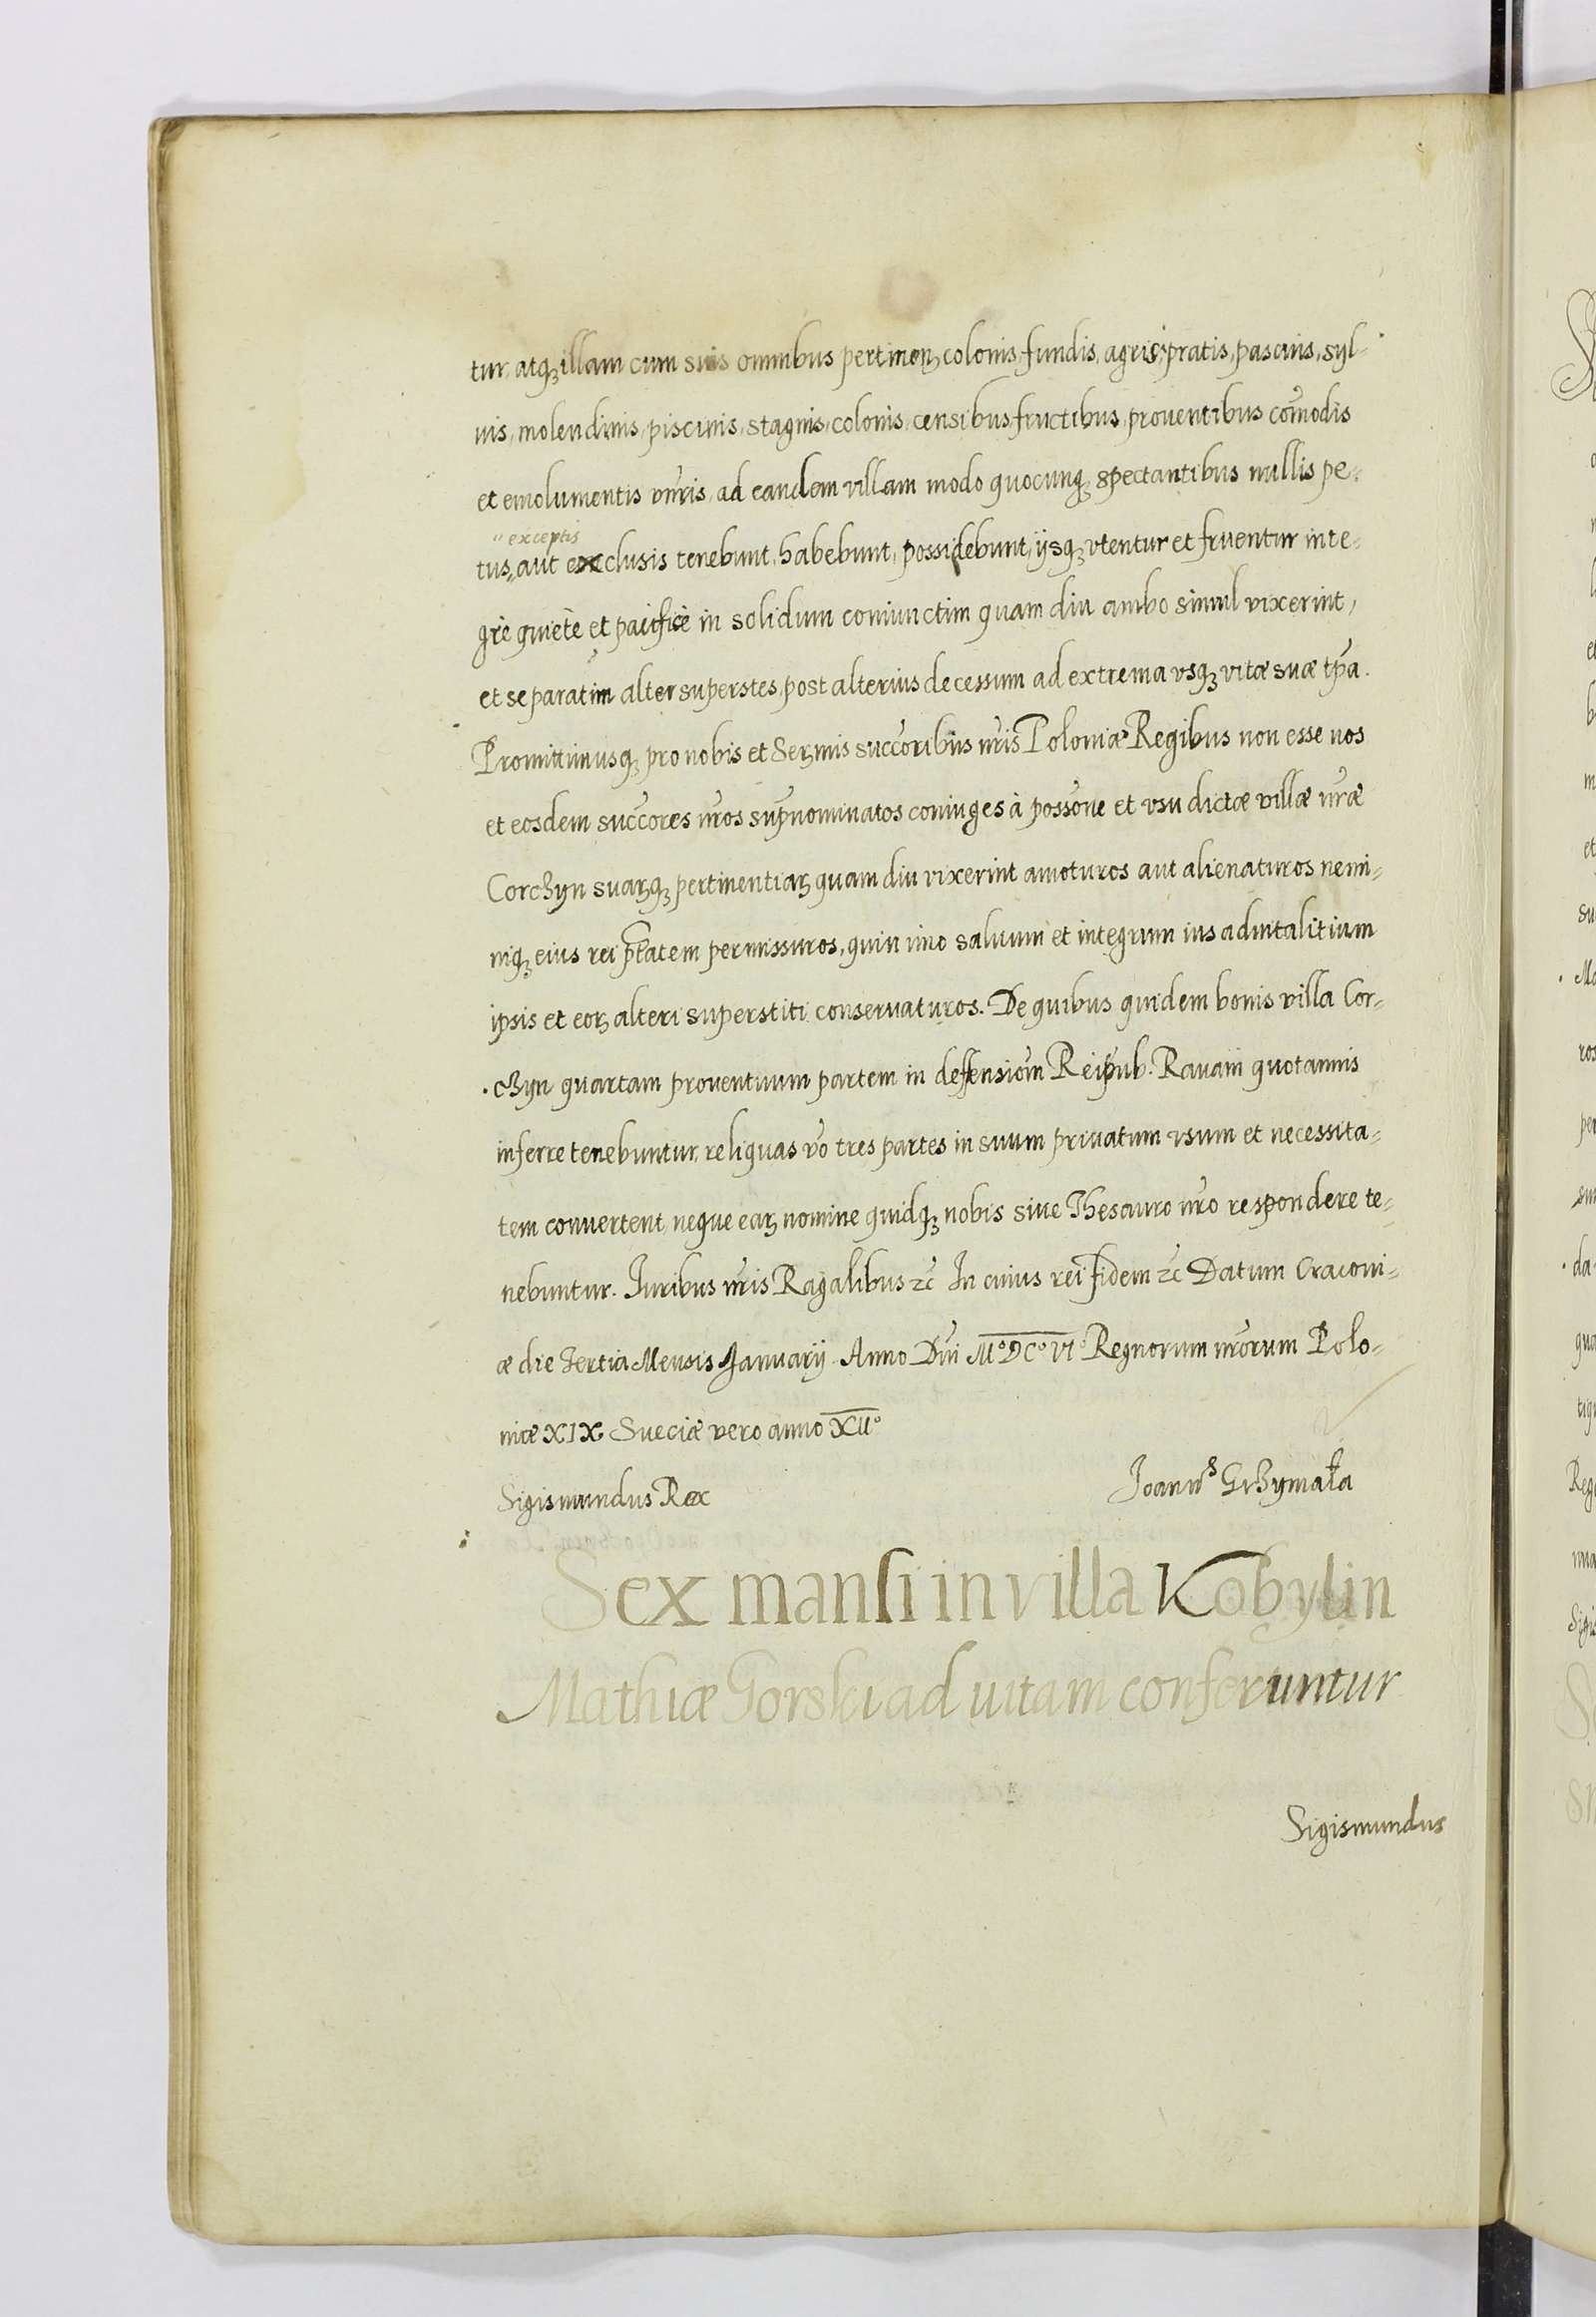 tur, atq3 illam cum suis omnibus pertinen3 colonis, fundis, agris, pratis, pascuis, syl-
uis, molendinis, piscinis, stagnis, colonis, censibus, fructibus, prouentibus com̄odis
et emolumentis vn̄ris, ad eandem villam modo quocunq3 spectantibus nullis pe-
exceptis
tus, aut exclusis tenebunt, habebunt, possidebunt, ijsq3 vtentur et fruentur inte-
grè quietè et pacificè in solidum coniunctim quam diu ambo simul vixerint,
et separatim alter superstes, post alterius decessum ad extrema vsq3 vitæ suæ tp̄a.
Promittimusq3 pro nobis et Ser3mis succ̄oribus nr̄is Poloniæ Regibus non esse nos
et eosdem succ̄ores nr̄os sup̄nominatos coniuges à poss̄one et vsu dictæ villæ nr̄æ
Corchyn suar3q3 pertinentiar3 quam diu vixerint amoturos aut alienaturos nemi-
niq3 eius rei pt̄atem permissuros, quin imo saluum et integrum ius aduitalitium
ipsis et eor3 alteri superstiti conseruaturos. De quibus quidem bonis villa Cor-
chyn quartam prouentuum partem in deffensiom̄ Reipub. Rauam quotannis
inferre tenebuntur, reliquas vō tres partes in suum priuatum vsum et necessita-
tem conuertent, neque ear3 nomine quidq3 nobis siue Thesauro nr̄o respondere te-
nebuntur. Iuribus nr̄is Ragalibus zc̄ In cuius rei fidem zc̄ Datum Cracoui-
æ die Tertia Mensis Januarij Anno Dn̄i M°DC°VI° Regnorum nr̄orum Polo-
niæ XIX Sueciæ vero anno XII°
Sigismundus Rex Joann͛s Grzymała
Sex mansi in villa Kobylin
Mathiæ Gorski ad uitam conferuntur
Sigismundus